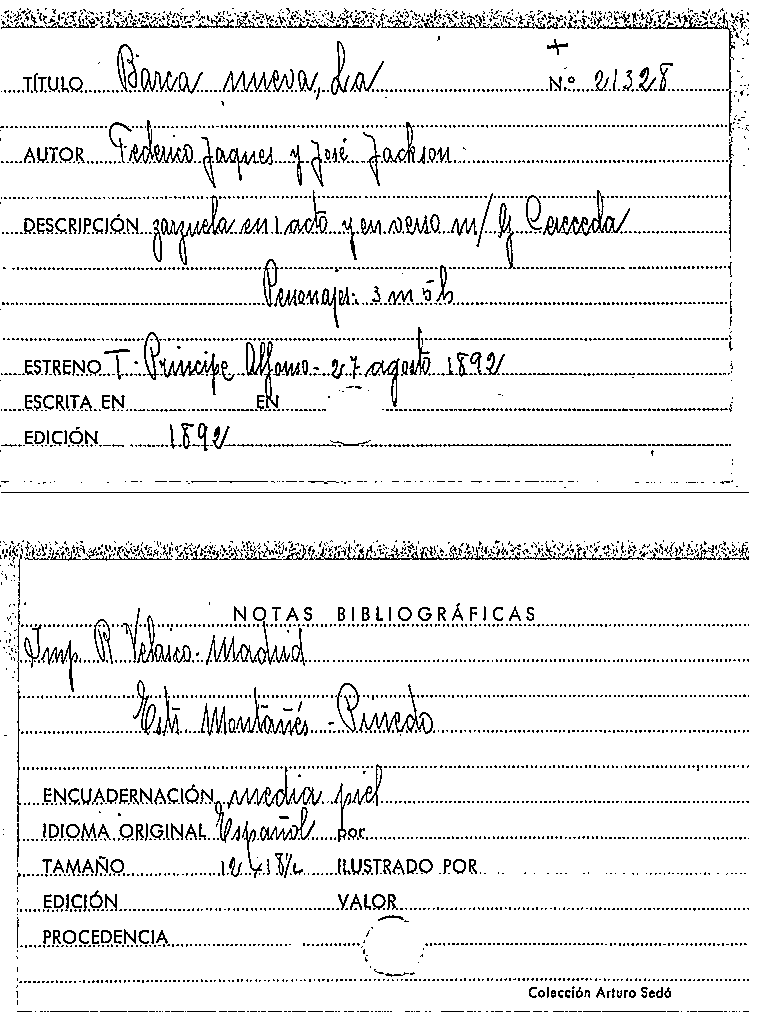 +
TÍTULO Barca nueva, La Nº 21328
AUTOR Federico Jaques y José Jackson
DESCRIPCIÓN zarzuela en 1 acto y en verso m/ G Cereceda
Personajes: 3 m 5 h
ESTRENO T. Principe Alfonso - 27 agosto 1892
ESCRITA EN EN
EDICIÓN 1892
NOTAS BIBLIOGRÁFICAS
Imp. R Velasco. Madrid
Estr Montañés - Pinedo
ENCUADERNACIÓN media piel
IDIOMA ORIGINAL Español por
TAMAÑO 12 x 18½ ILUSTRADO POR
EDICIÓN VALOR
PROCEDENCIA
Colección Arturo Sedó